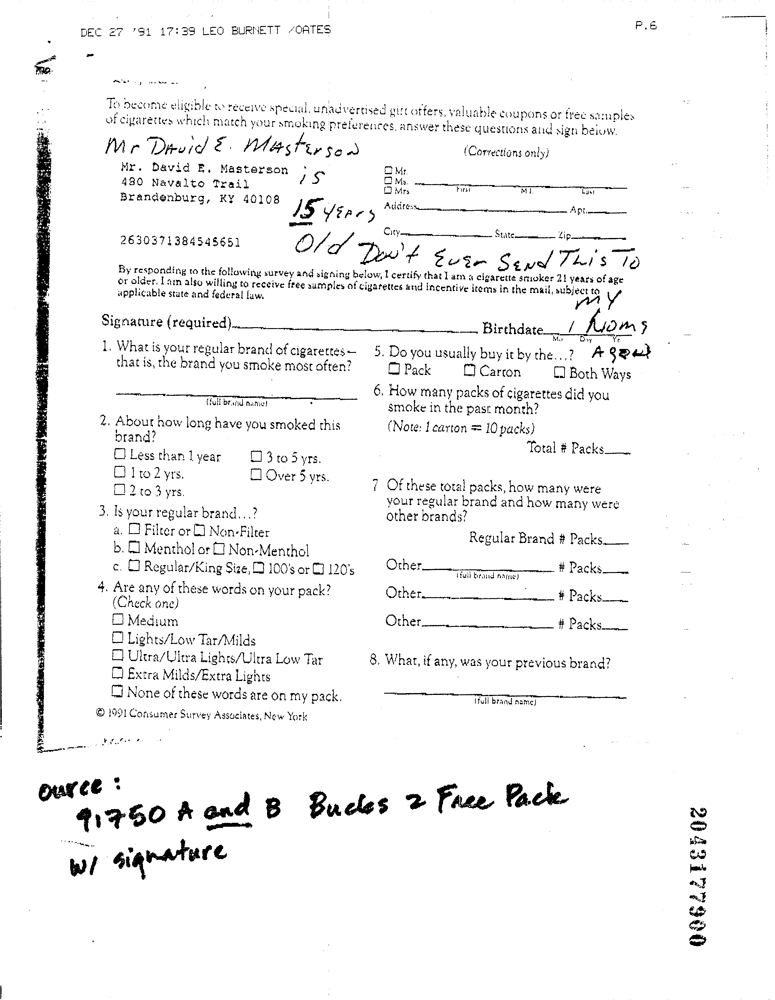 DEC 27 '91 17:39 LEO BURNETT /OATES P.6
To become eligible to receive special, unadvertised gift offers, valuable coupons or free samples
of cigarettes which match your smoking preferences, answer these questions and sign below.
Mr David E. Masterson
(Corrections only)
Mr. David E. Masterson
480 Navalto Trail
Brandenburg, KY 40108
is
15 years
Old Don't Ever Send This To
my
Homs
Agen
☐ Mr.
☐ Ms.
☐ Mrs.
First M.I. Last
Address Apt.
City State Zip
2630371384545651
By responding to the following survey and signing below, I certify that I am a cigarette smoker 21 years of age
or older. I am also willing to receive free samples of cigarettes and incentive items in the mail, subject to
applicable state and federal law.
Signature (required) Birthdate
Mo. Day Yr.
1. What is your regular brand of cigarettes–
that is, the brand you smoke most often?
(full brand name)
2. About how long have you smoked this
brand?
☐ Less than 1 year ☐ 3 to 5 yrs.
☐ 1 to 2 yrs. ☐ Over 5 yrs.
☐ 2 to 3 yrs.
3. Is your regular brand...?
a. ☐ Filter or ☐ Non-Filter
b. ☐ Menthol or ☐ Non-Menthol
c. ☐ Regular/King Size, ☐ 100's or ☐ 120's
4. Are any of these words on your pack?
(Check one)
☐ Medium
☐ Lights/Low Tar/Milds
☐ Ultra/Ultra Lights/Ultra Low Tar
☐ Extra Milds/Extra Lights
☐ None of these words are on my pack.
© 1991 Consumer Survey Associates, New York
5. Do you usually buy it by the...?
☐ Pack ☐ Carton ☐ Both Ways
6. How many packs of cigarettes did you
smoke in the past month?
(Note: 1 carton = 10 packs)
Total # Packs
7 Of these total packs, how many were
your regular brand and how many were
other brands?
Regular Brand # Packs
Other # Packs
(full brand name)
Other # Packs
Other # Packs
8. What, if any, was your previous brand?
(full brand name)
ource:
91750 A and B Bucks 2 Free Pack
w/ signature
2043177900